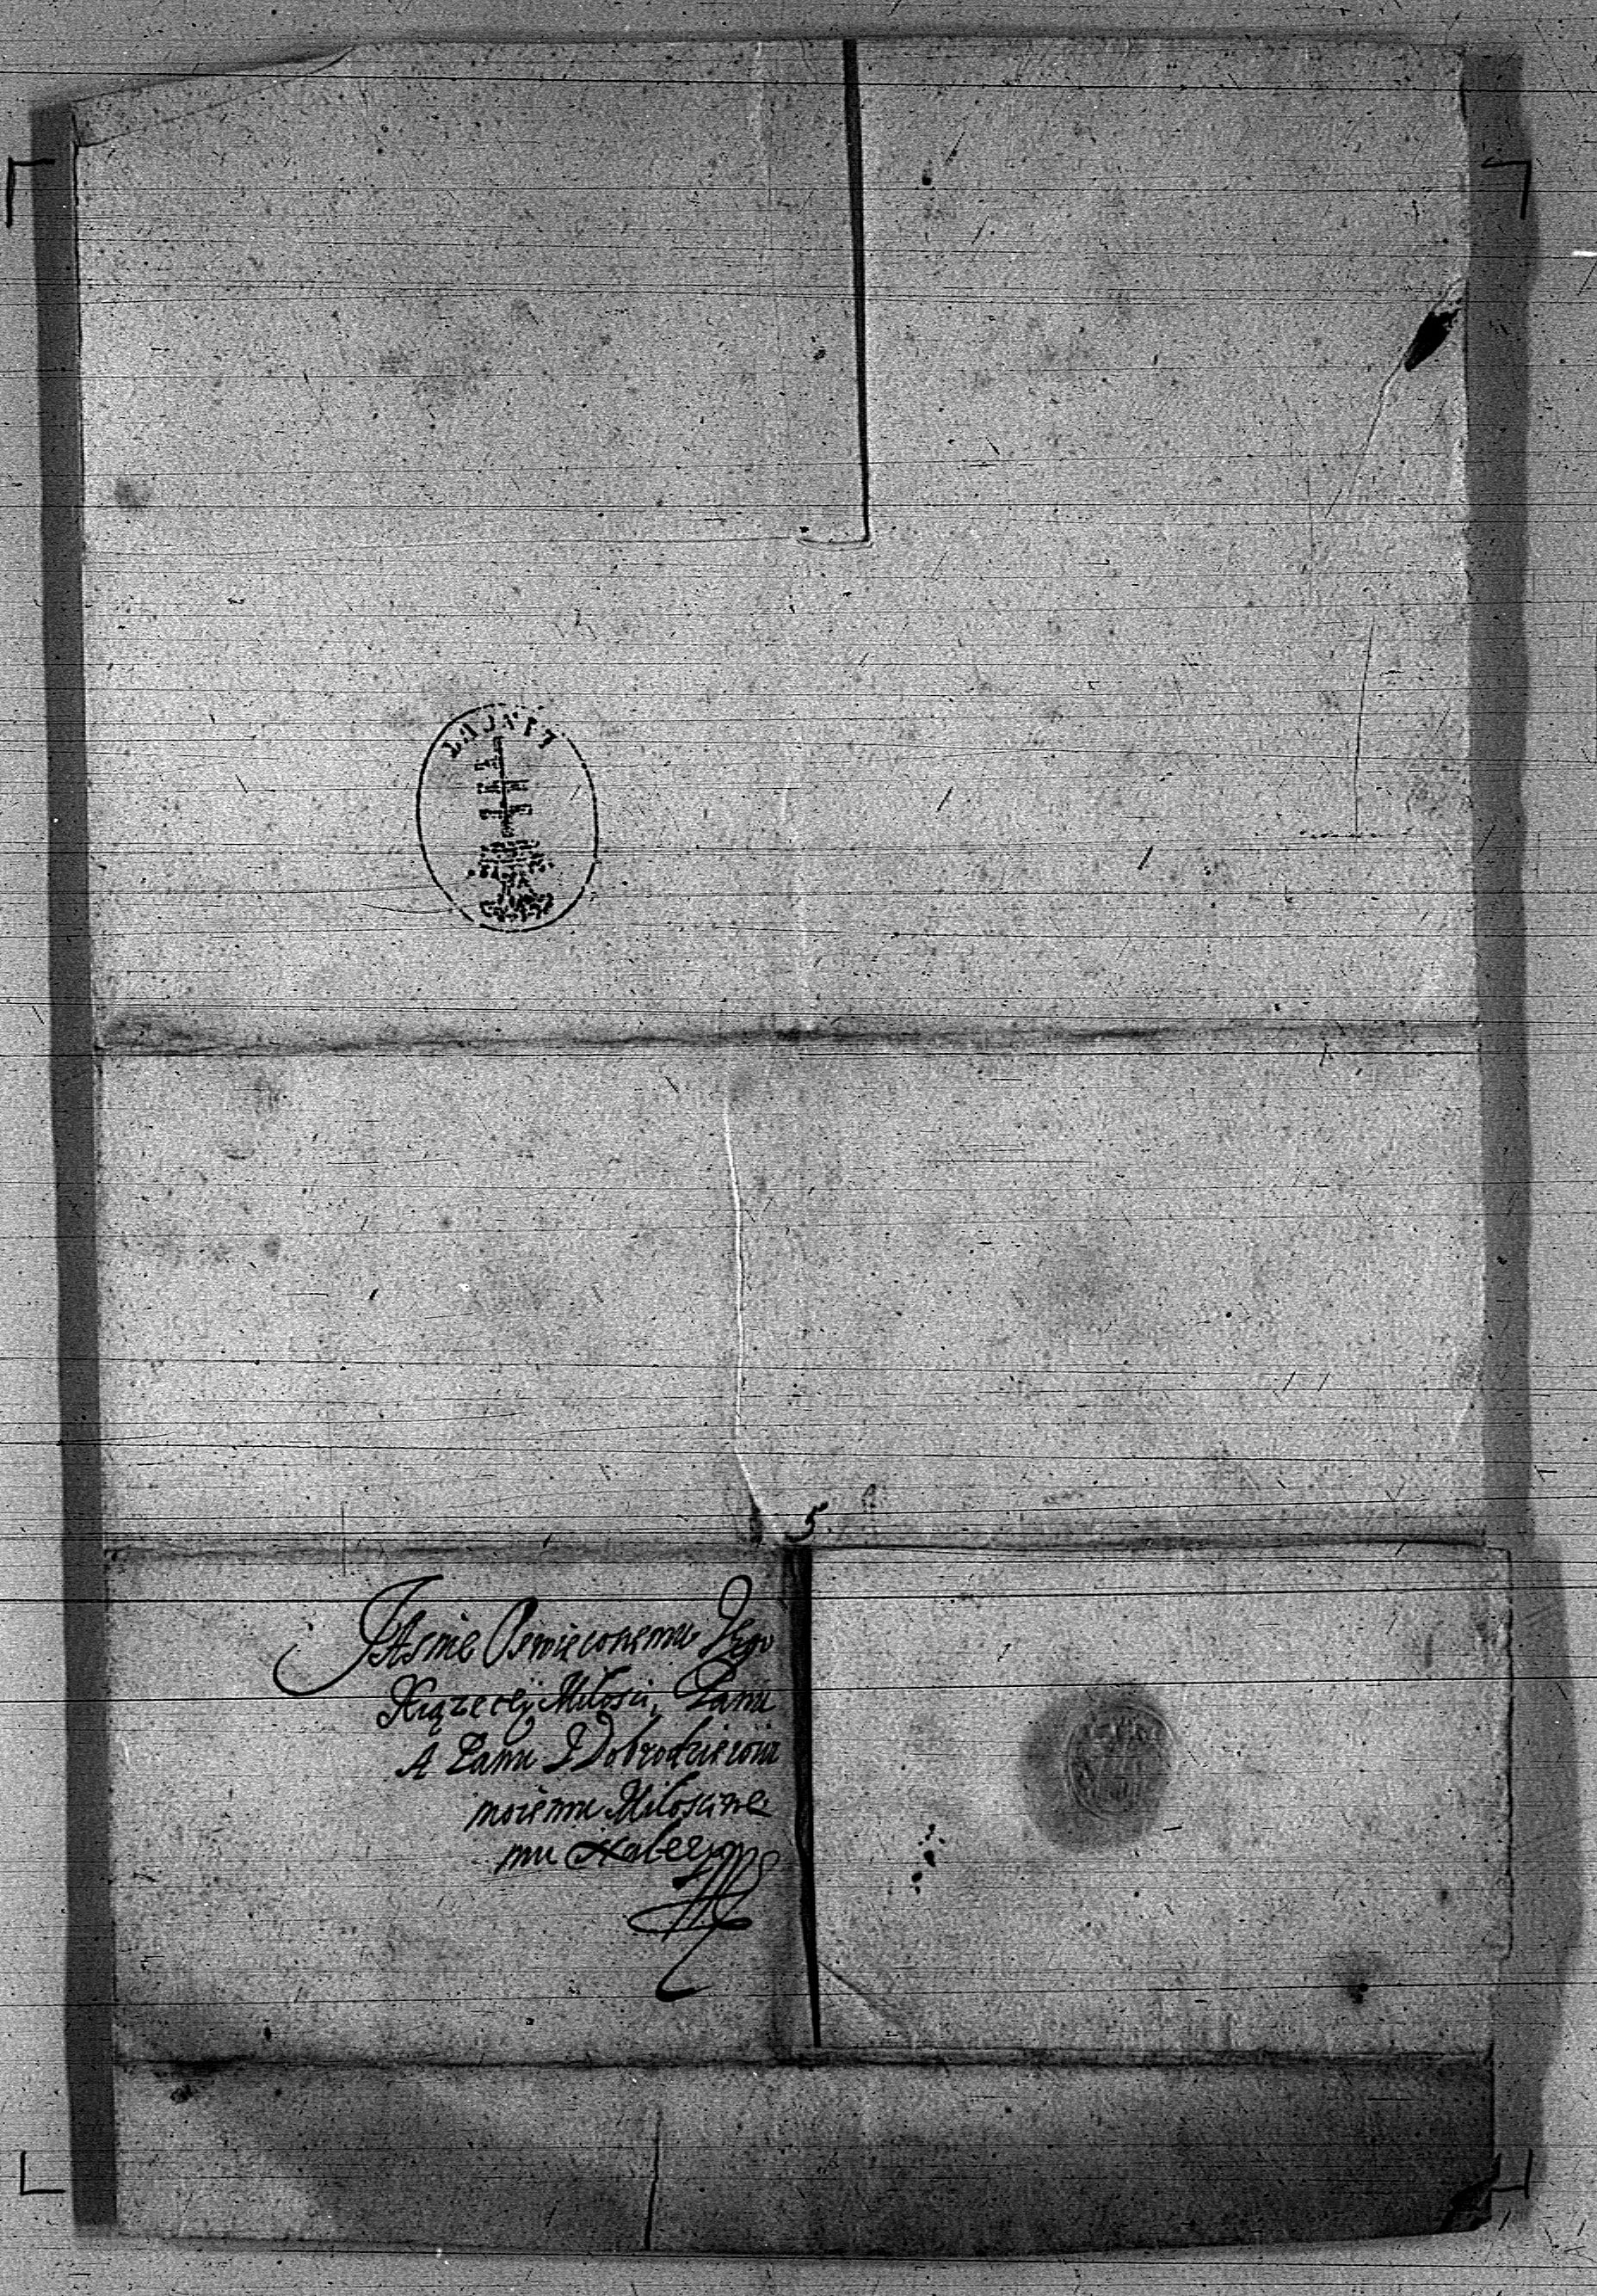 JAsnie Oswieconemu Jego
Xiązęcej Miłosci, Panu
A Panu Dobrodzieiowi
moiemu Miłosciwe
mu należy